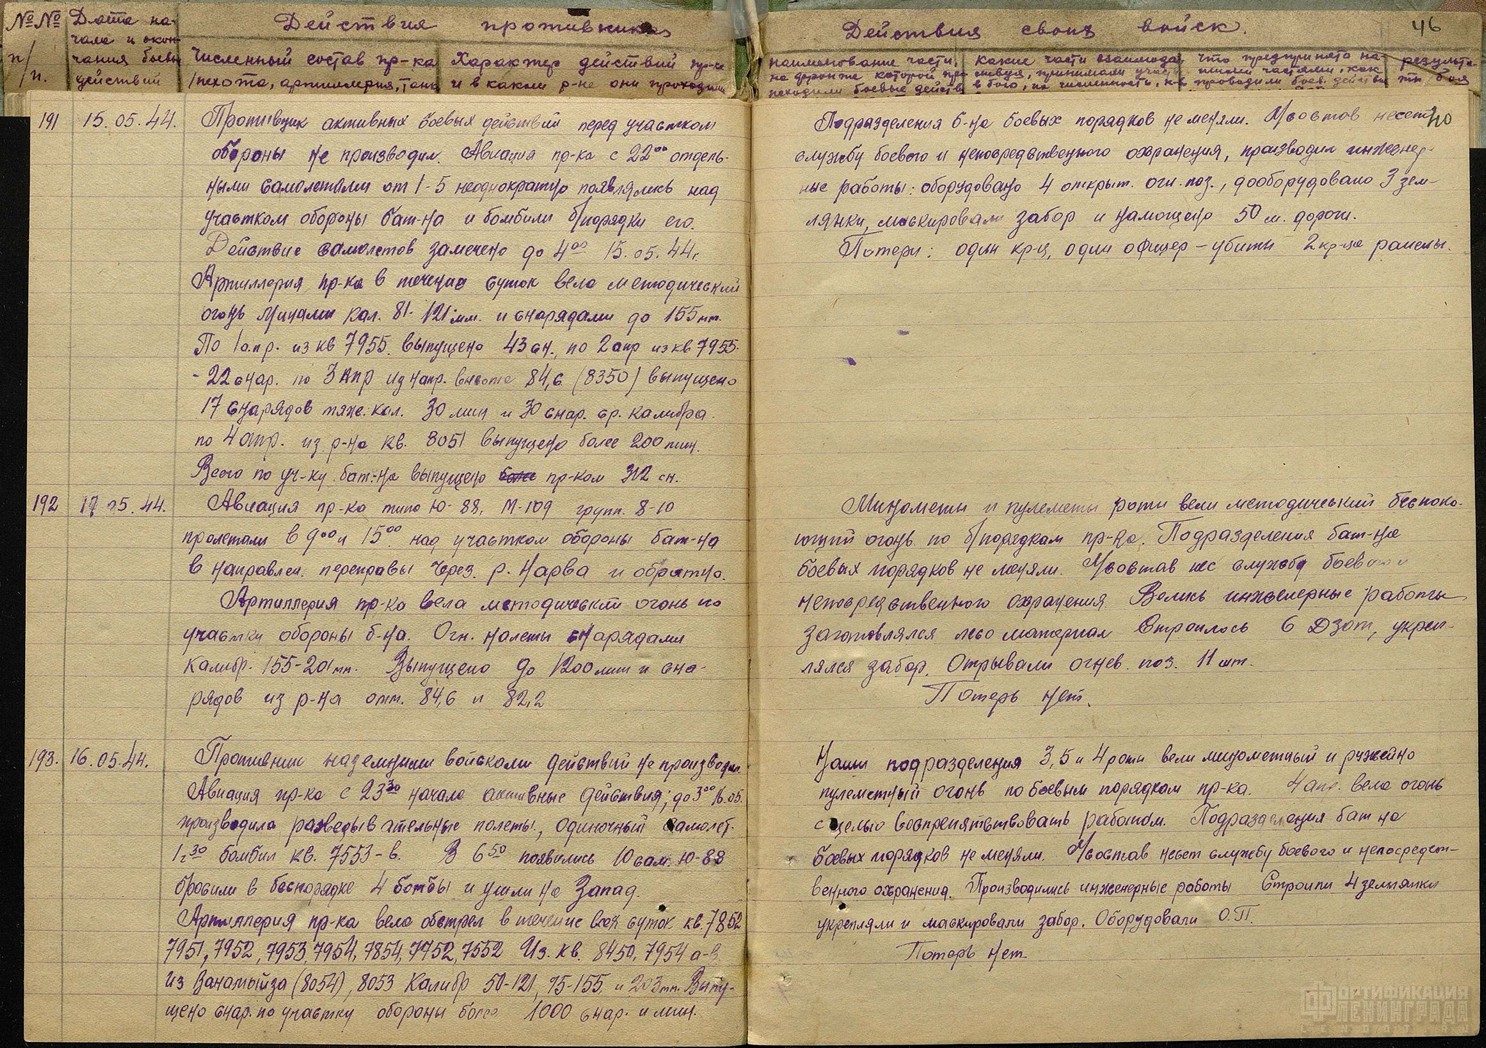 №№ п/п.
Дата на-
чала и окон-
чания боев.
действий
Действия противника
численный состав пр-ка
/пехота, артиллерия, танк
Характер действий пр-ка
и в каком р-не они проходили
Действия своих войск.
46
наименование части,
на фронте которой про-
исходили боевые действ
Какие части взаимодей-
ствуя, принимали участ
в бою, их численность,
что предпринято на-
шими частями, как
проводили боев. действ
результа-
ты боя
191
15.05.44.
Противник активных боевых действий перед участком
обороны не производил. Авиация пр-ка с 22⁰⁰ отдель-
ными самолетами от 1-5 неоднократно появлялись над
участком обороны бат-на и бомбили б/порядки его.
Действие самолетов замечено до 4⁰⁰ 15.05.44г
Артиллерия пр-ка в течение суток вела методический
огонь минами кал. 81-121мм. и снарядами до 155мм.
По 1 о.пр. из кв 7955 выпущено 43 сн., по 2 апр из кв 7955-
-22 снар. по 3 апр из напр. высота 84,6 (8350) выпущено
17 снарядов тяж. кал. 30 мин и 30 снар. ср. калибра.
по 4 апр. из р-на кв. 8051 выпущено более 200 мин.
Всего по уч-ку бат-на выпущено пр-ком 312 сн.
Подразделения б-на боевых порядков не меняли. Ууставе несет
40
службу боевого и непосредственного охранения, производил инженер-
ные работы: оборудовано 4 открыт. огн. поз., дооборудовано 3 зем-
лянки, маскировали забор и намощено 50 м. дороги.
Потери: один кр-ц, один офицер - убиты 2 кр-ца ранены.
192
17.05.44.
Авиация пр-ка типа Ю-88, М-109 групп. 8-10
пролетали в 9⁰⁰ и 15⁰⁰ над участком обороны бат-на
в направлен. переправы через р. Нарва и обратно.
Артиллерия пр-ка вела методический огонь по
участку обороны б-на. Огн. налеты снарядами
калибр. 155-201мм. Выпущено до 1200 мин и сна-
рядов из р-на отм. 84,6 и 82,2
Минометы и пулеметы роты вели методический беспоко-
ющий огонь по б/порядкам пр-ка. Подразделения бат-на
боевых порядков не меняли. нес службу боевого и
непосредственного охранения. Велись инженерные работы
Заготовлялся лесо материал Строилось 6 Дзот, укреп-
лялся забор. Отрывали огнев. поз. 11 шт.
Потерь нет.
193.
16.05.44.
Противник наземными войсками действий не производил.
Авиация пр-ка с 23³⁰ начала активные действия, до 3⁰⁰ 16.05.
производила разведывательные полеты, одиночный самолет.
1²³⁰ бомбил кв. 7553-в. В 6⁵⁰ появились 10 сам. Ю-88
бросили в беспорядке 4 бомбы и ушли на Запад.
Артиллерия пр-ка вела обстрел в течение всех суток кв. 7852
7951, 7952, 7953, 7954, 7854, 7752, 7552 Из. кв. 8450, 7954 а-в
из (8054), 8053 Калибр 50-121, 75-155 и 203мм. Выпу-
щено снар. по участку обороны более 1000 снар. и мин.
Наши подразделения 3, 5 и 4 роты вели минометный и ружейно
пулеметный огонь по боевым порядкам пр-ка. вела огонь
с целью воспрепятствовать работам. Подразделения бат на
боевых порядков не меняли. несет службу боевого и непосредст-
венного охранения. Производились инженерные работы Строили 4 землянки
укрепляли и маскировали забор. Оборудовали О.П.
Потерь нет.
ФОРТИФИКАЦИЯ
ЛЕНИНГРАДА